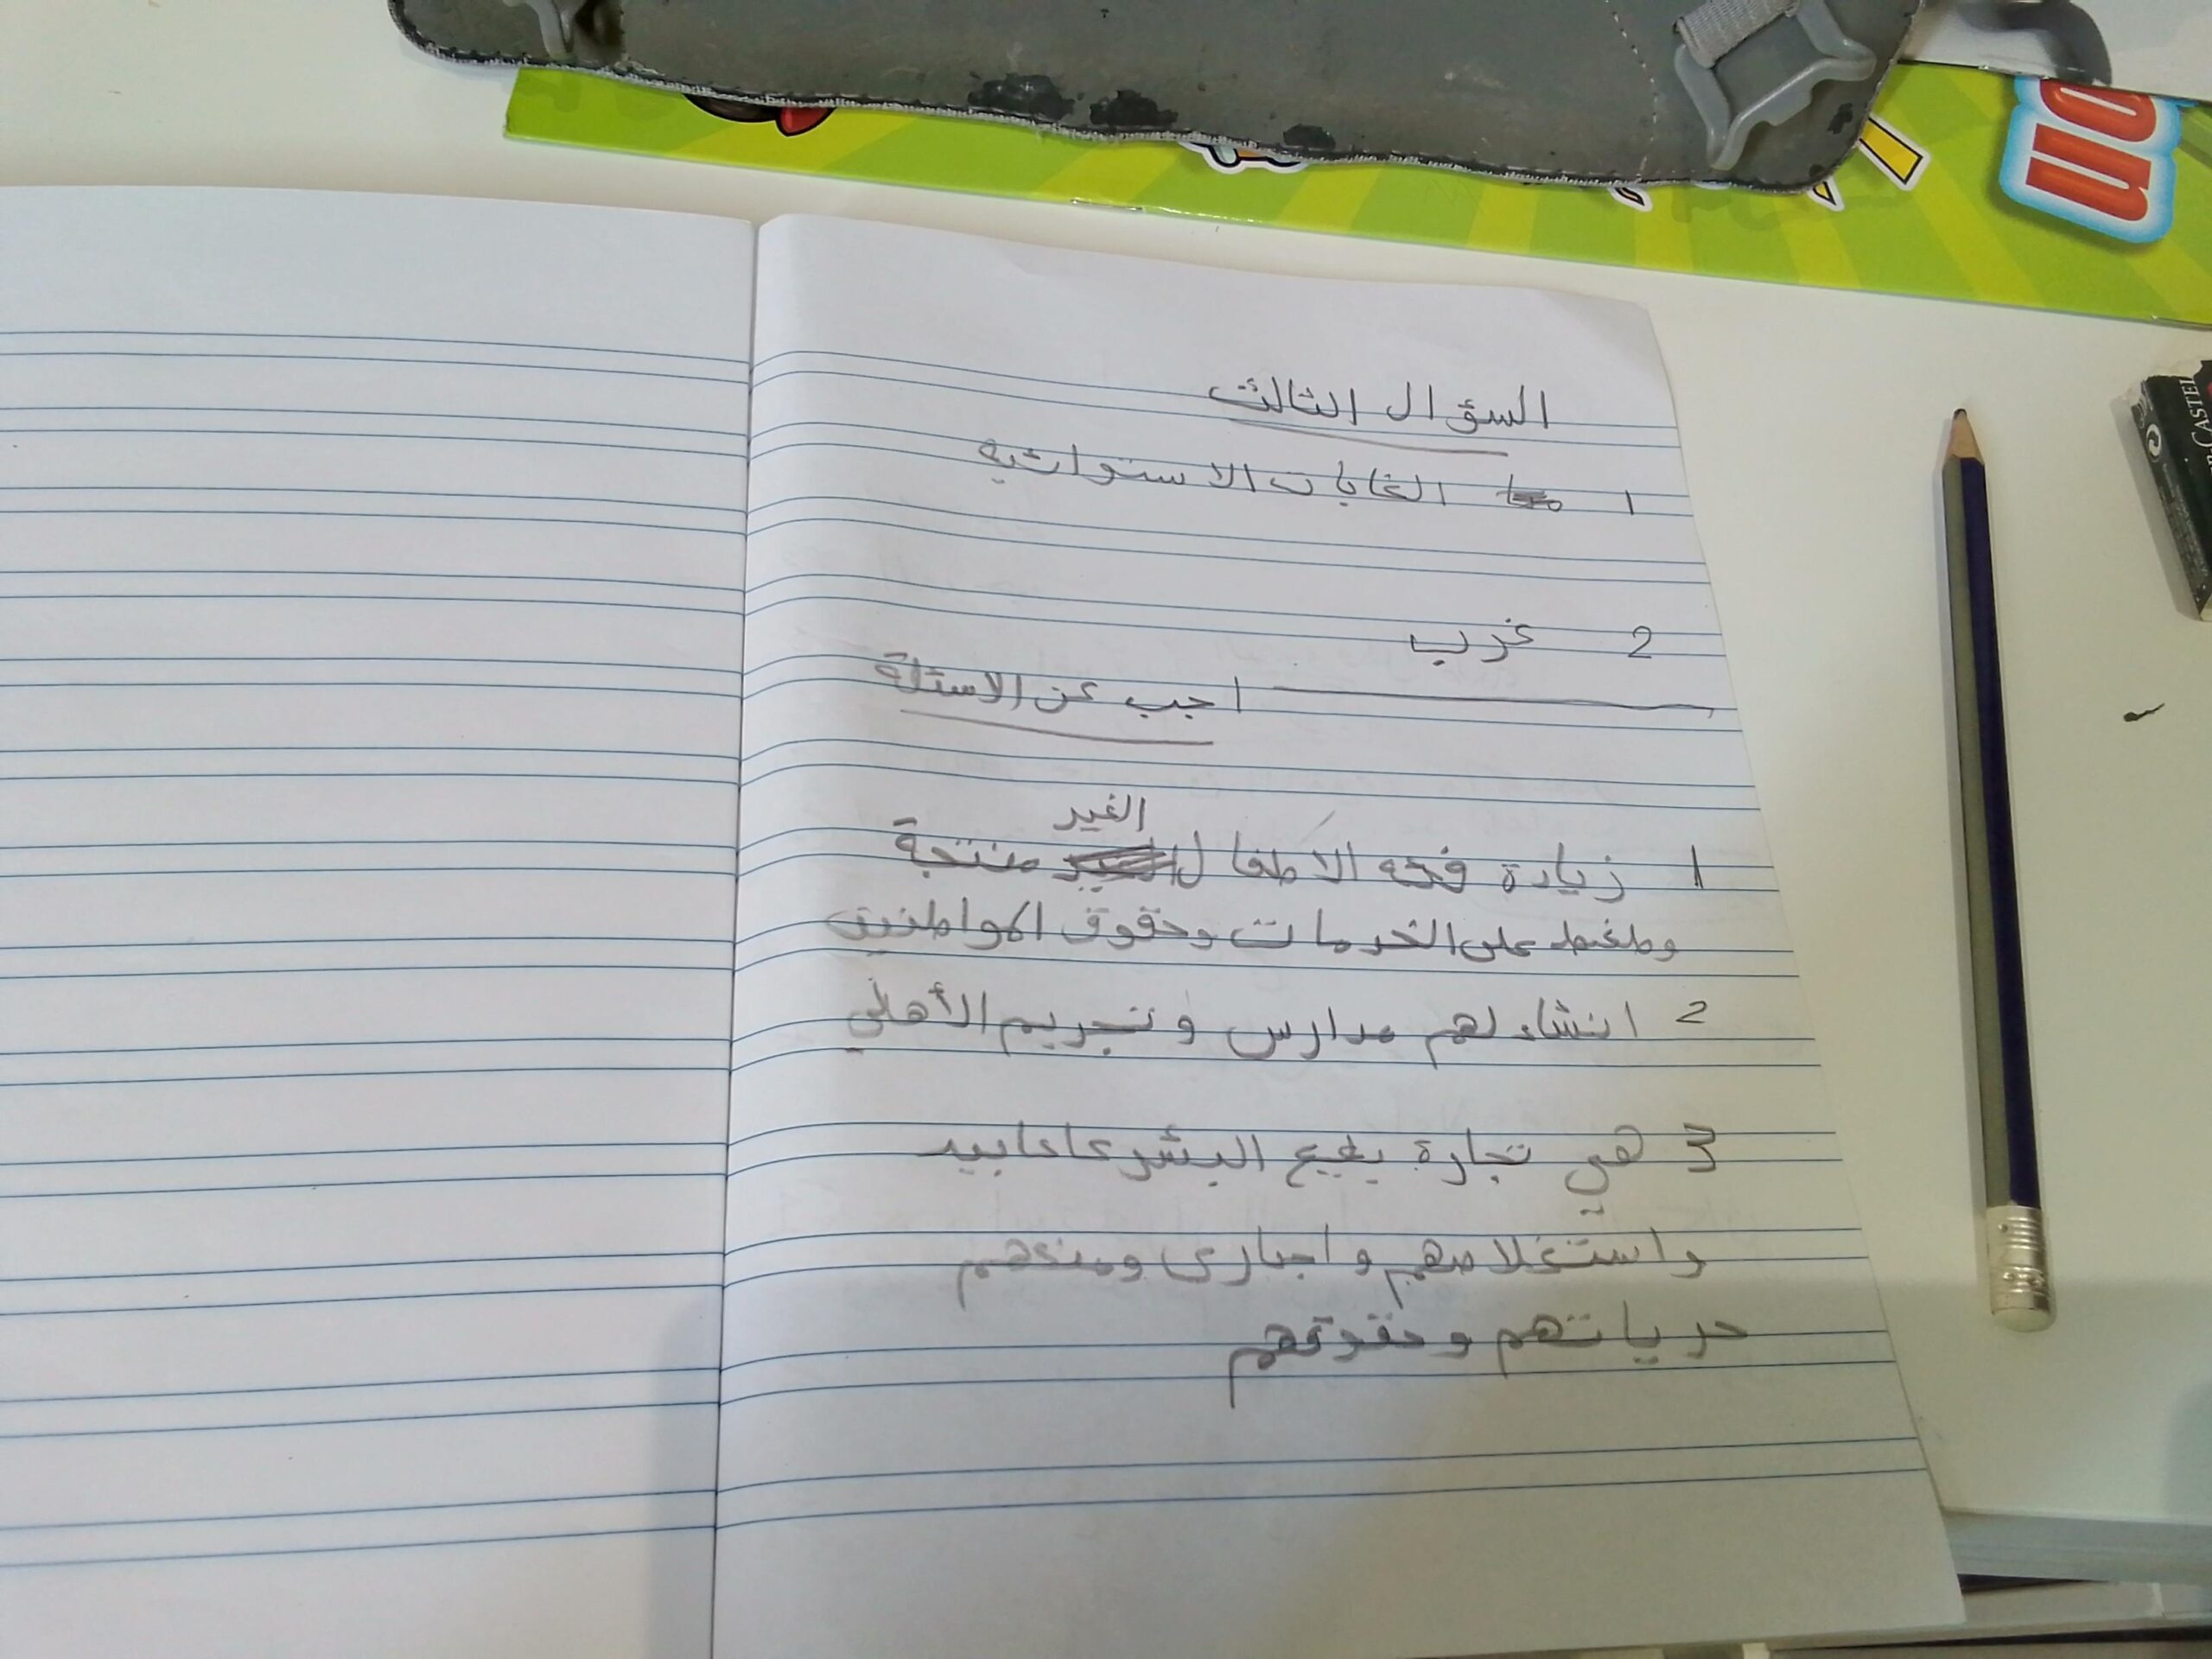 on
CASTEL
السؤال الثالث
1 الغابات الاستوائيه
2 غرب
اجب عن الاسئلة
الغير
1 زيادة فئه الاطفال منتجة
وطغط على الخدمات وحقوق المواطنين
2 انشاء لهم مدارس و تجريم الأهلي
3 هي تجارة بيع البشر كاعابيد
واستغلاصهم واجبارى ومنعهم
حرياتهم وحقوقهم